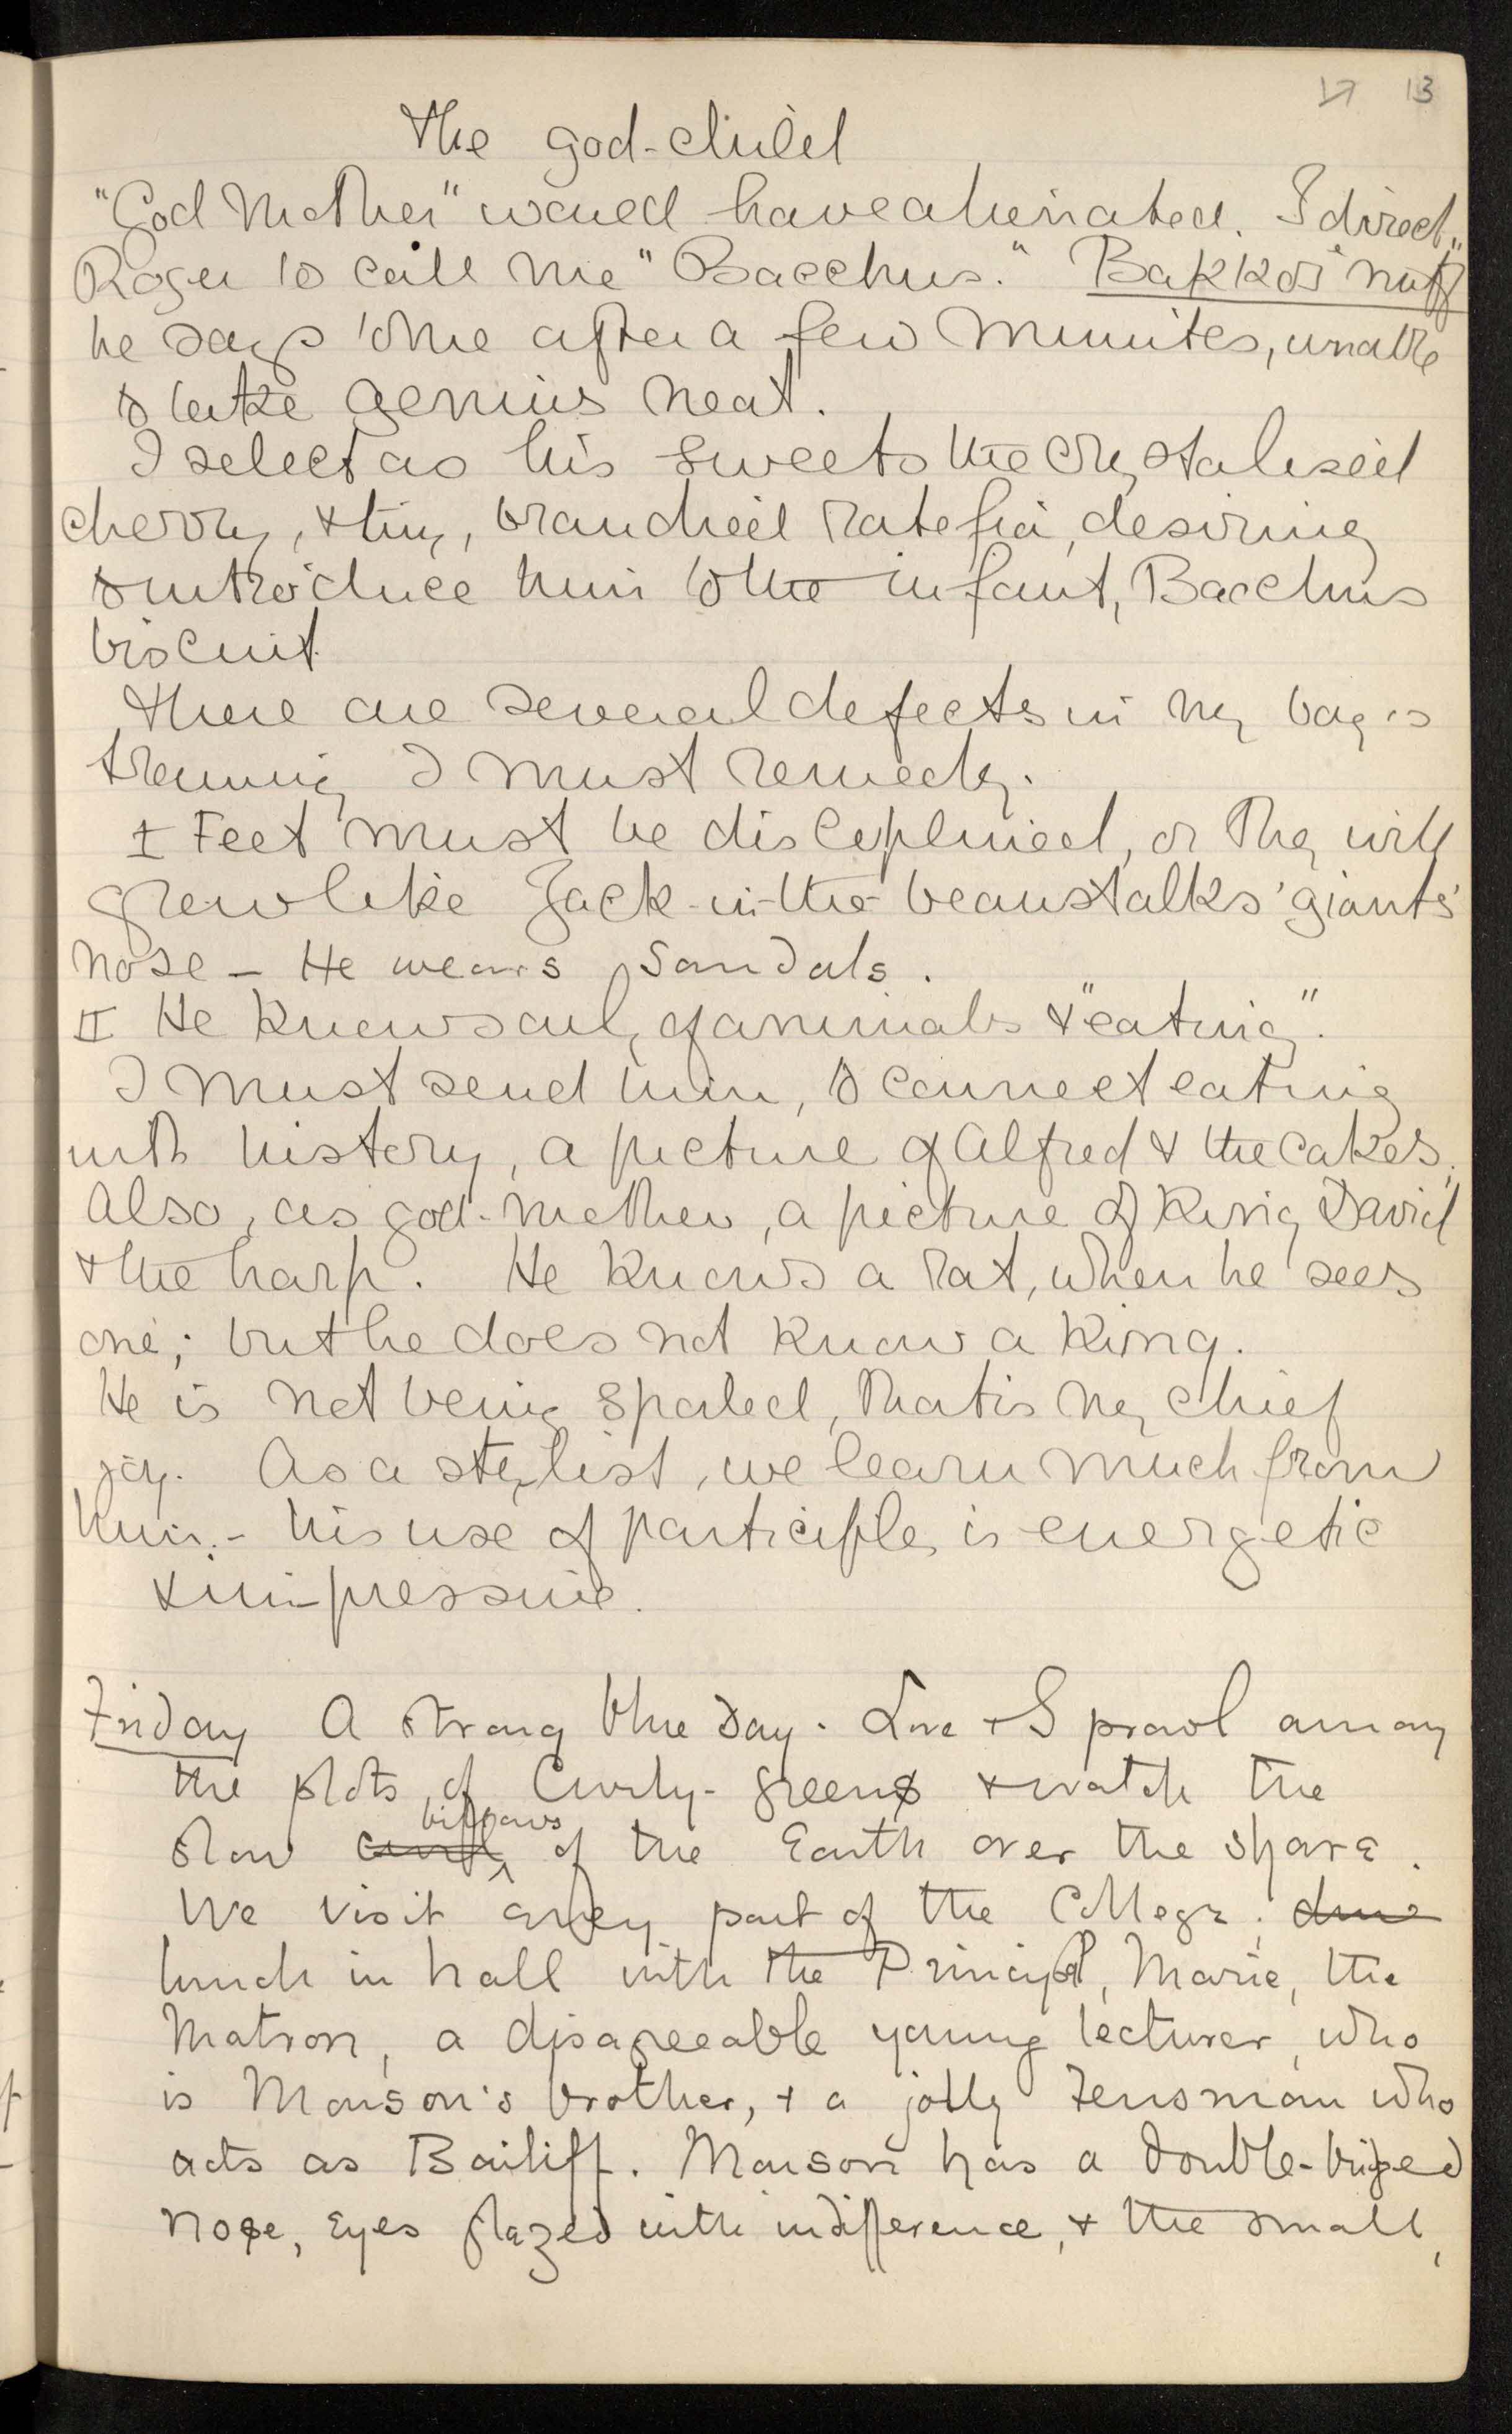 17 13
The god-child
"God Mother" would have alienated. I direct
Roger to call me "Bacchus." "Bakkos nuff"
he says to me after a few minutes, unable
to take genius neat.
I select as his sweets the crystalised
cherry, & tiny, brandied ratafia, desiring
to introduce him to the infant, Bacchus
biscuit.
There are several defects in my boy's
training I must remedy.
I Feet must be disciplined, or they will
grow like Jack-in-the-beanstalks 'giants'
nose – He wears sandals.
II He knows only of animals & "eating".
I must send him, to connect eating
with history, a picture of Alfred & the cakes.
Also, as god-mother, a picture of King David
& the harp. He knows a rat, when he sees
one; but he does not know a King.
He is not being spoiled, that is my chief
joy. As a stylist, we learn much from
him. – his use of participle is energetic
& impressive.
Friday A strong blue day. Love & I prowl among
the plots of Curly-greens & watch the
slow billows of the Earth over the share.
We visit every part of the College; dine
lunch in hall with the Principal, Marie, the
Matron, a disagreeable young lecturer, who
is Monson's brother, & a jolly Fensman who
acts as Bailiff. Monson has a double-bridged
nose, Eyes glazed with indifference, & the small,